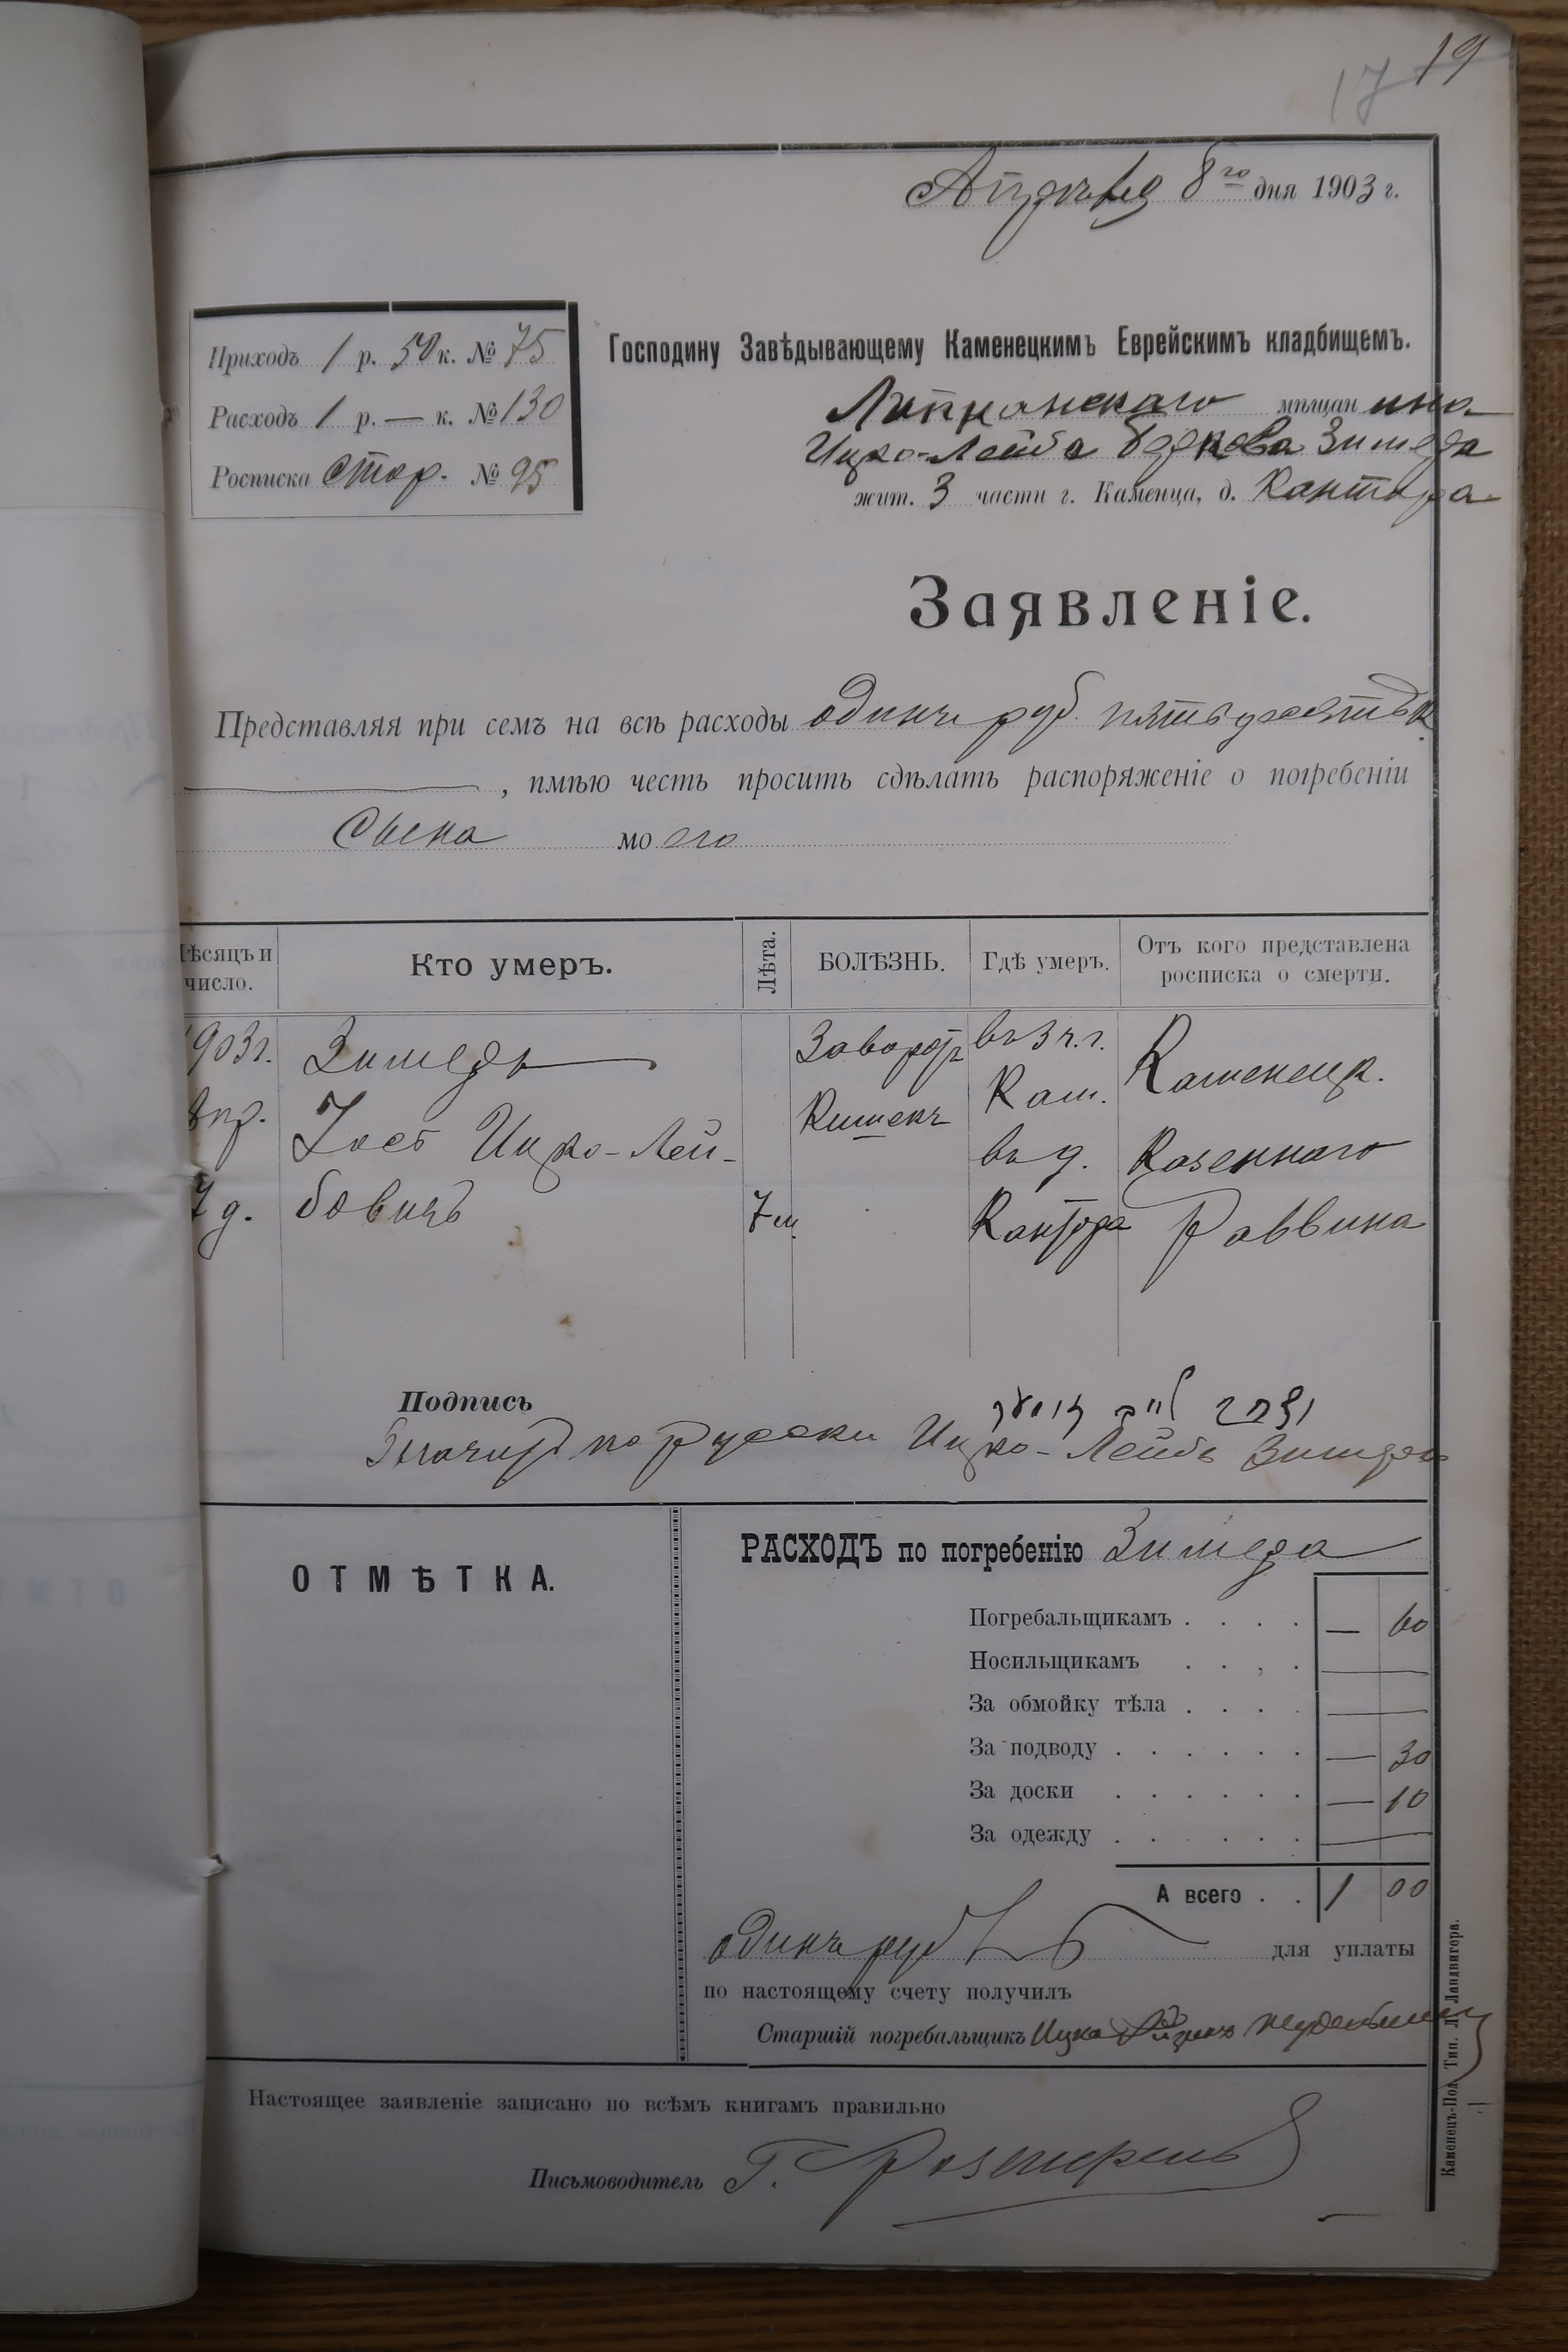 17 19
Апрѣля 8го дня 1903 г.
Приходъ 1 р. 50 к. № 75
Расходъ 1 р. — к. № 130
Росписка стор. № 95
Господину Завѣдывающему Каменецкимъ Еврейскимъ кладбищемъ.
мѣщанина
Ицко-Лейба Зишеда
жит. 3 части г. Каменца, д. Кантора
Заявленіе.
Представляя при семъ на всѣ расходы одинъ руб. пятьдесятъ к.
, имѣю честь просить сдѣлать распоряженіе о погребеніи
Сына моего
Мѣсяцъ и число. Кто умеръ. Лѣта. БОЛѢЗНЬ. Гдѣ умеръ. Отъ кого представлена росписка о смерти.
903г. Заворотъ въ 3 ч. г. Каменецк.
Апр. Ицко-Лей- Кишекъ Кам. Казеннаго
7 д. бовичъ 7 м. въ д. Кантора Раввина
Подпись
Значитъ по русски Ицко-Лейбъ
ОТМѢТКА.
РАСХОДЪ по погребенію Зишеда
Погребальщикамъ . . . . — 60
Носильщикамъ . . , .
За обмойку тѣла . . . .
За подводу . . . . . . — 30
За доски . . . . . . — 10
За одежду . . . . . .
А всего . . 1 00
одинъ руб для уплаты
по настоящему счету получилъ
Старшій погребальщикъ Ицко
Настоящее заявленіе записано по всѣмъ книгамъ правильно
Письмоводитель Г.
Каменецъ-Под. Тип. Л. Ландвигера.